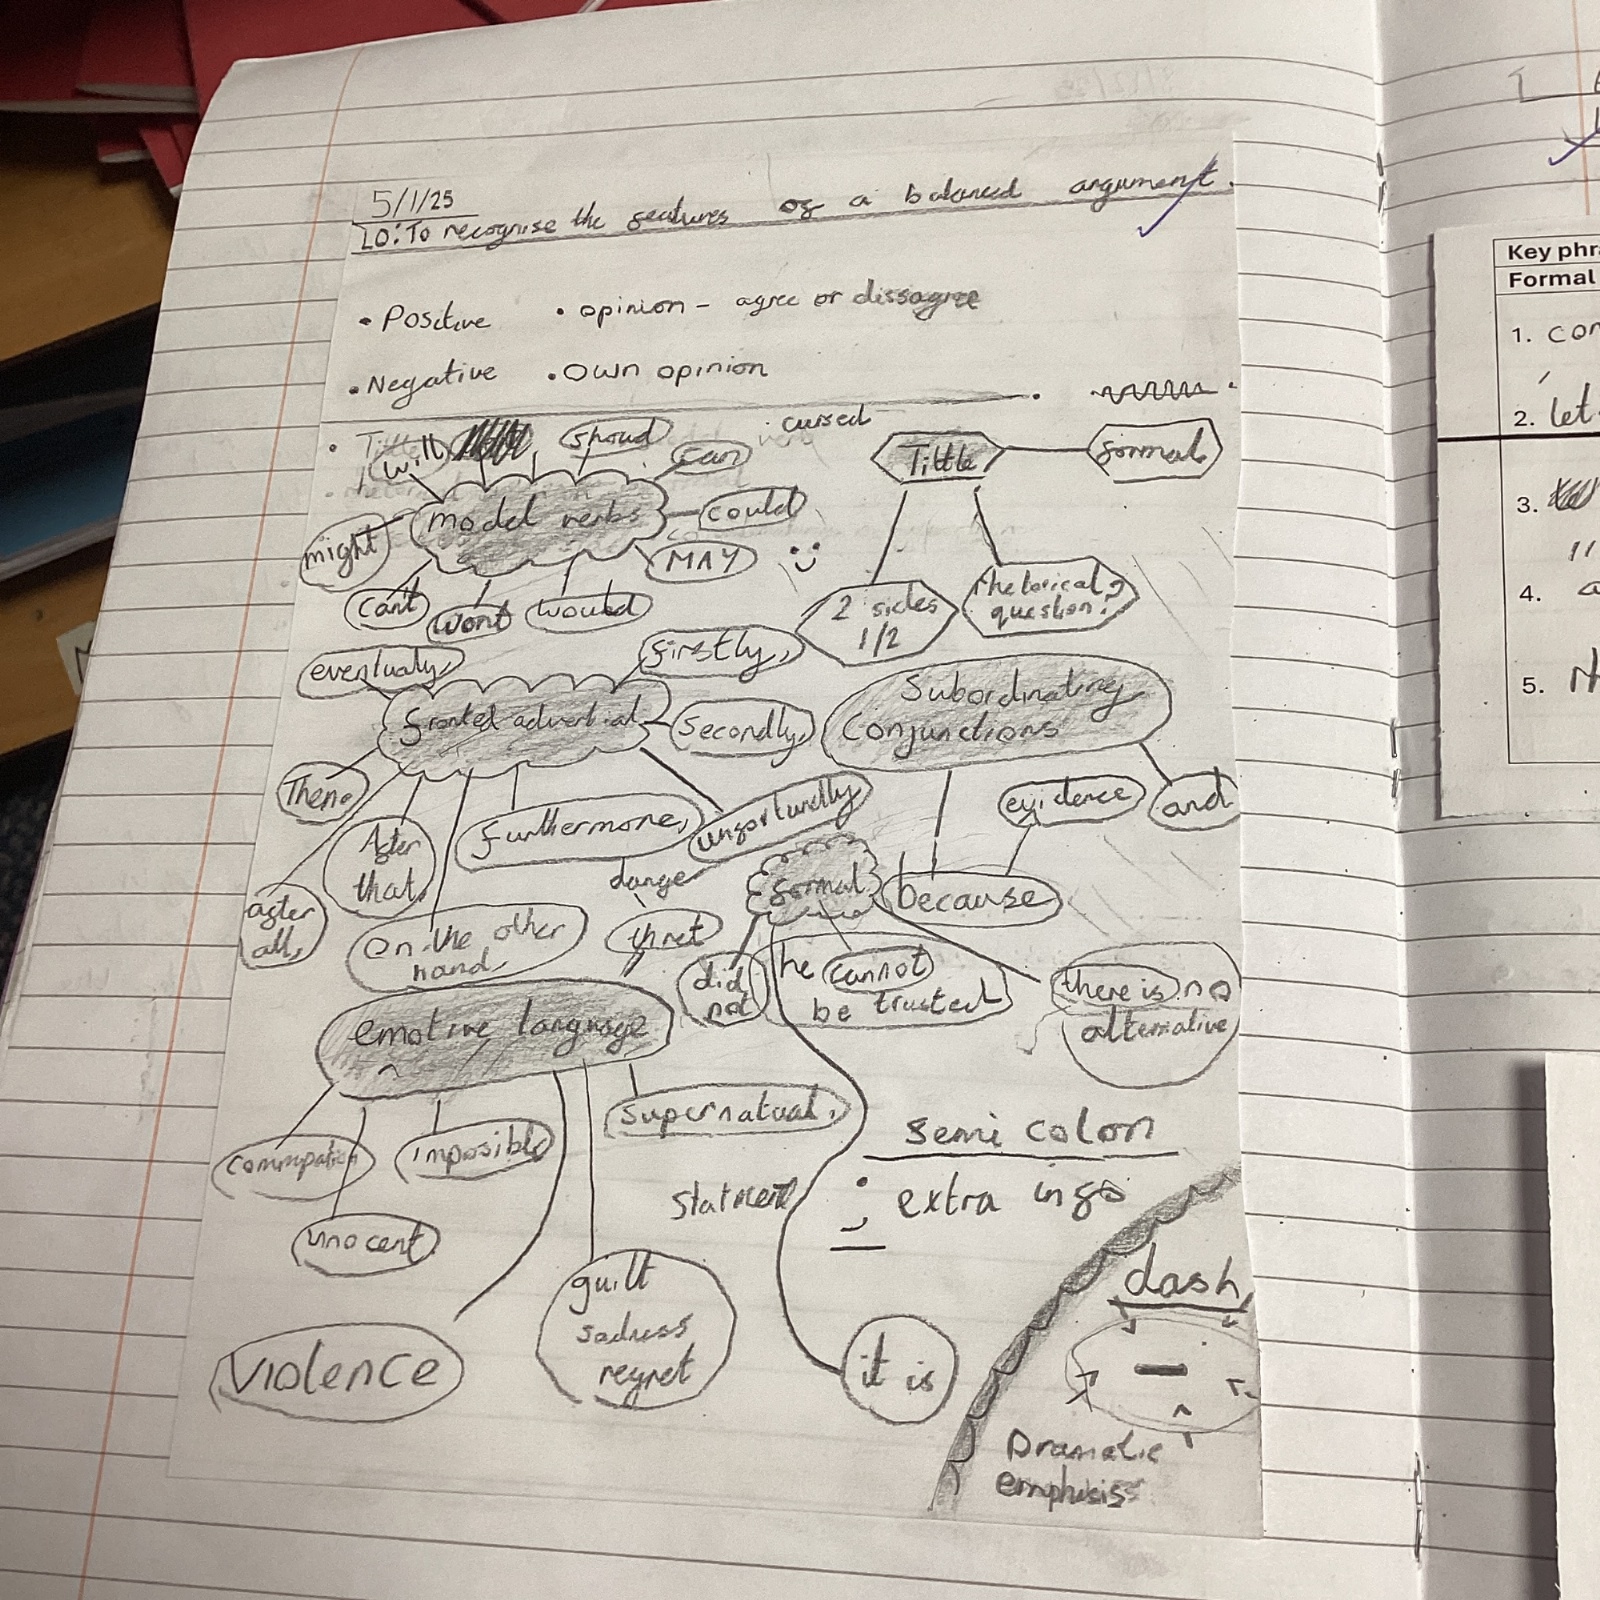 5/1/25
LO: To recognise the features of a balanced argument.
• Positive
• opinion - agree or dissagree
• Negative
• Own opinion
• Tittle
will
shoud
can
cursed
Tittle
formal
model verbs
could
might
MAY
can't
wont
would
2 sides
1/2
rhetorical
question?
eventually,
firstly,
fronted adverbial
Secondly,
Subordinating
Conjunctions
Then
After
that,
furthermore,
unfortundly
evidence
and
danger
formal
because
after
all,
on the other
hand,
thret
did
not
he cannot
be trusted
there is no
alternative
emotive language
supernatual,
imposible
semi colon
; extra info
statment
innocent
guilt
sadness
regret
violence
it is
dash
-
Dramatic
emphisis
Key phr
Formal
1. con
2. let
3.
4. a
5. N